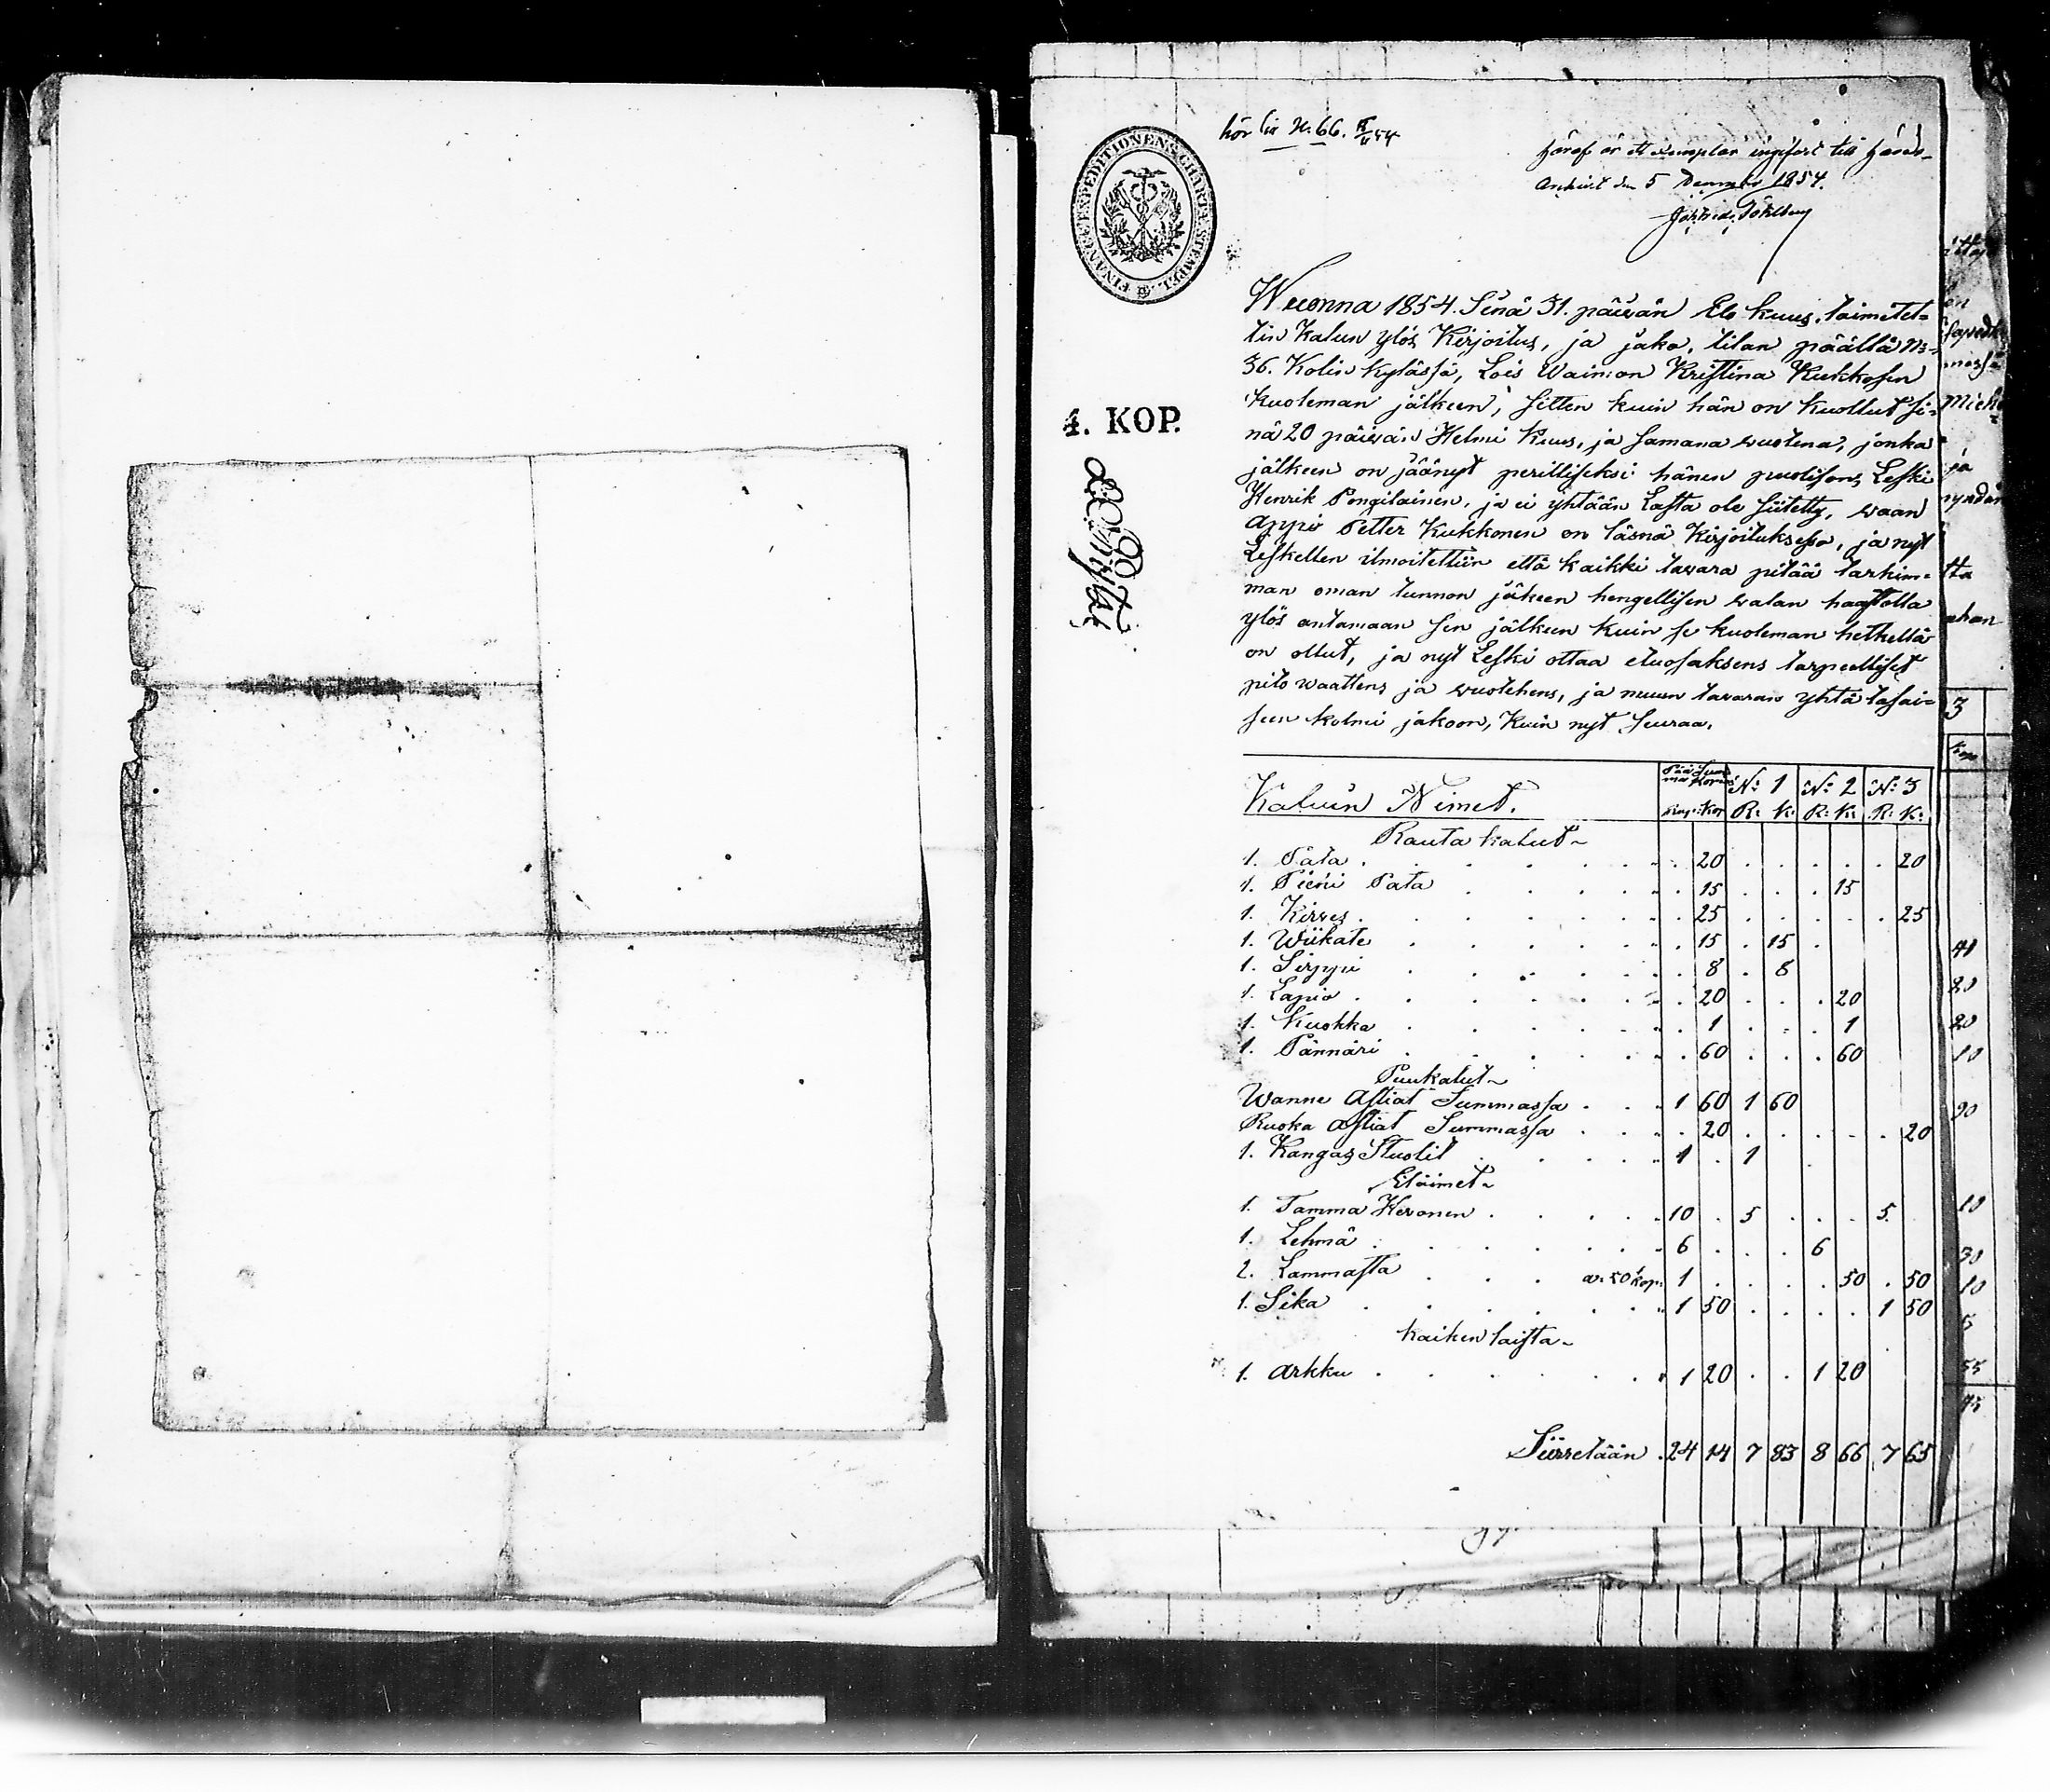 hör till N. 66.
Häraf är ett exemplar ingifvet till Härads-
Arkivet den 5 December 1854.
FINANCE EXPEDITIONENS CHARTÆ STEMPEL
4. KOP.
Wuonna 1854. Sinä 31. päivän Elo kuus. toimitet=
tin Kalun ylös Kirjoitus, ja jako, tilan päällä N:o
36. Kolin kylässä, Lois Waimon Kristina Kukkosen
kuoleman jälkeen, sitten kuin hän on kuollut si=
nä 20 päivän Helmi Kuus, ja samana vuotena, jonka
jälkeen on jäänyt perilliseksi hänen puolisons, Leski
Henrik Pongilainen, ja ei yhtään Lasta ole siitetty, waan
appi Petter Kukkonen on läsnä Kirjoituksessa, ja nyt
Leskellen ilmoitettiin että kaikki tavara pitää tarkim=
man oman tunnon jälkeen hengellisen walan haastolla
ylös antamaan sen jälkeen kuin se kuoleman hetkellä
on ollut, ja nyt Leski ottaa etuosaksens tarpeelliset
pito waattens ja vuotehens, ja muun tavaran yhtä tasai=
seen kolmi jakoon, Kuin nyt seuraa.
Kaluin Nimet. Pää Summa N:o 1 N:o 2 N:o 3
Rup: Kop R: K: R: K: R: K:
Rauta kalut
1. Pata . 20 . 20
1. Pieni Pata . 15 . 15
1. Kirves . 25 . 25
1. Wiikate . 15 . 15
1. Sirppi . 8 . 8
1. Lapio . 20 . 20
1. Kuokka . 1 . 1
1. Pännäri . 60 . 60
Puukalut
Wanne Astiat Summassa . 1 60 1 60
Ruoka Astiat Summassa . 20 . 20
1. Kangas Stuolit . 1 . 1
Eläimet
1. Tamma Hevonen . 10 . 5 . 5.
1. Lehmä . 6 . 6
2. Lammasta . a: 50 kop: 1 . 50 . 50
1. Sika . 1 50 . 1 50
kaiken laista
1. Arkku . 1 20 . 1 20
Siirretään . 24 14 7 83 8 66 7 65